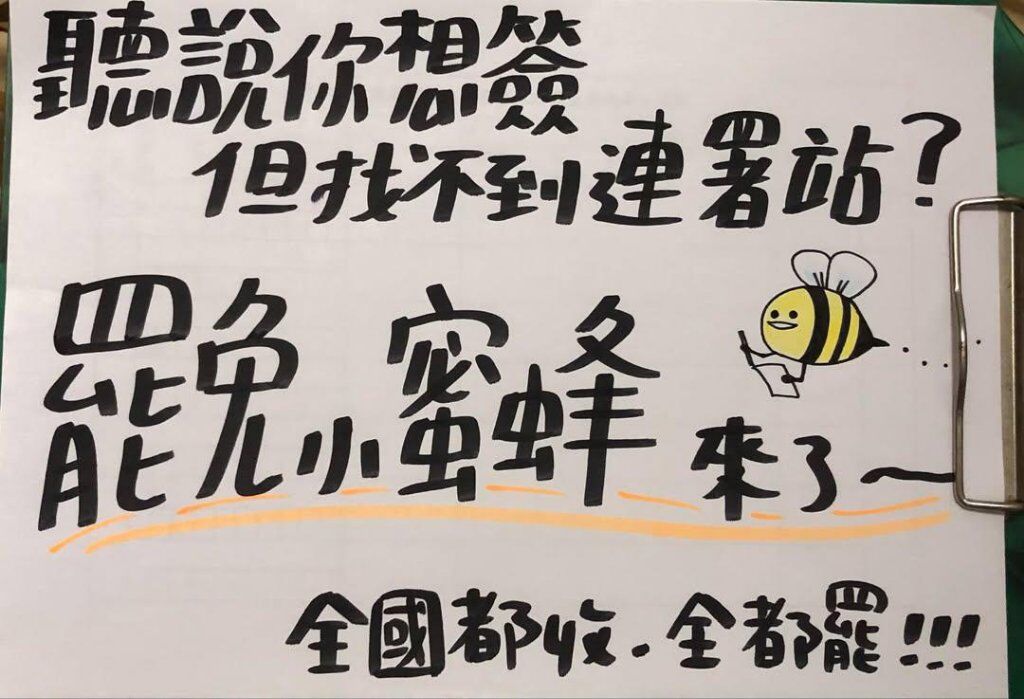 聽說你想簽
但找不到連署站?
罷免小蜜蜂來了~
全國都收.全都罷!!!